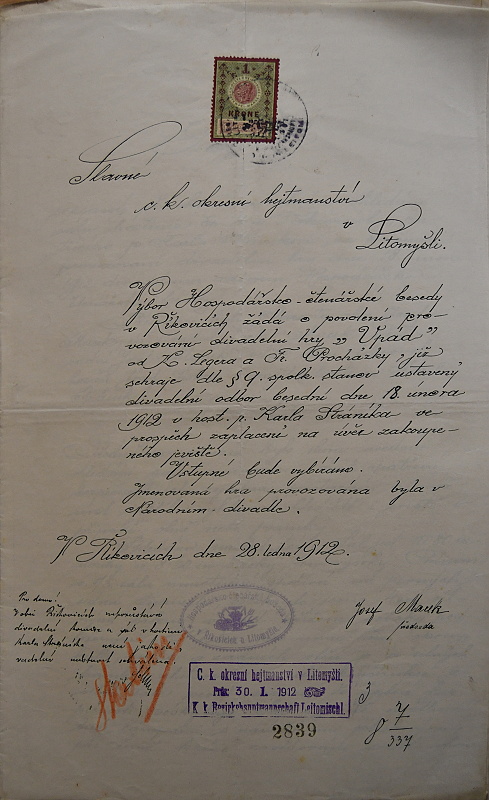 1
KRONE
Slavné
c. k. okresní hejtmanství
v
Litomyšli.
Výbor Hospodářsko-čtenářské besedy
v Řikovicích žádá o povolení pro-
vozování divadelní hry „Vpád"
od K. Legera a Fr. Procházky, již
sehraje dle § 9. spolk. stanov ustavený
divadelní odbor besední dne 18. února
1912 v host. p. Karla Stráníka ve
prospěch zaplacení na úvěr zakoupe-
ného jeviště.
Vstupné bude vybíráno.
Jmenovaná hra provozována byla v
Národním-divadle.
V Řikovicích dne 28. ledna 1912.
Josef Marek
předseda
v Řikovicích u Litomyšle
C. k. okresní hejtmanství v Litomyšli.
Präs. 30. I. 1912
K. k. Bezirkshauptmannschaft Leitomischl.
2839
3
7
337